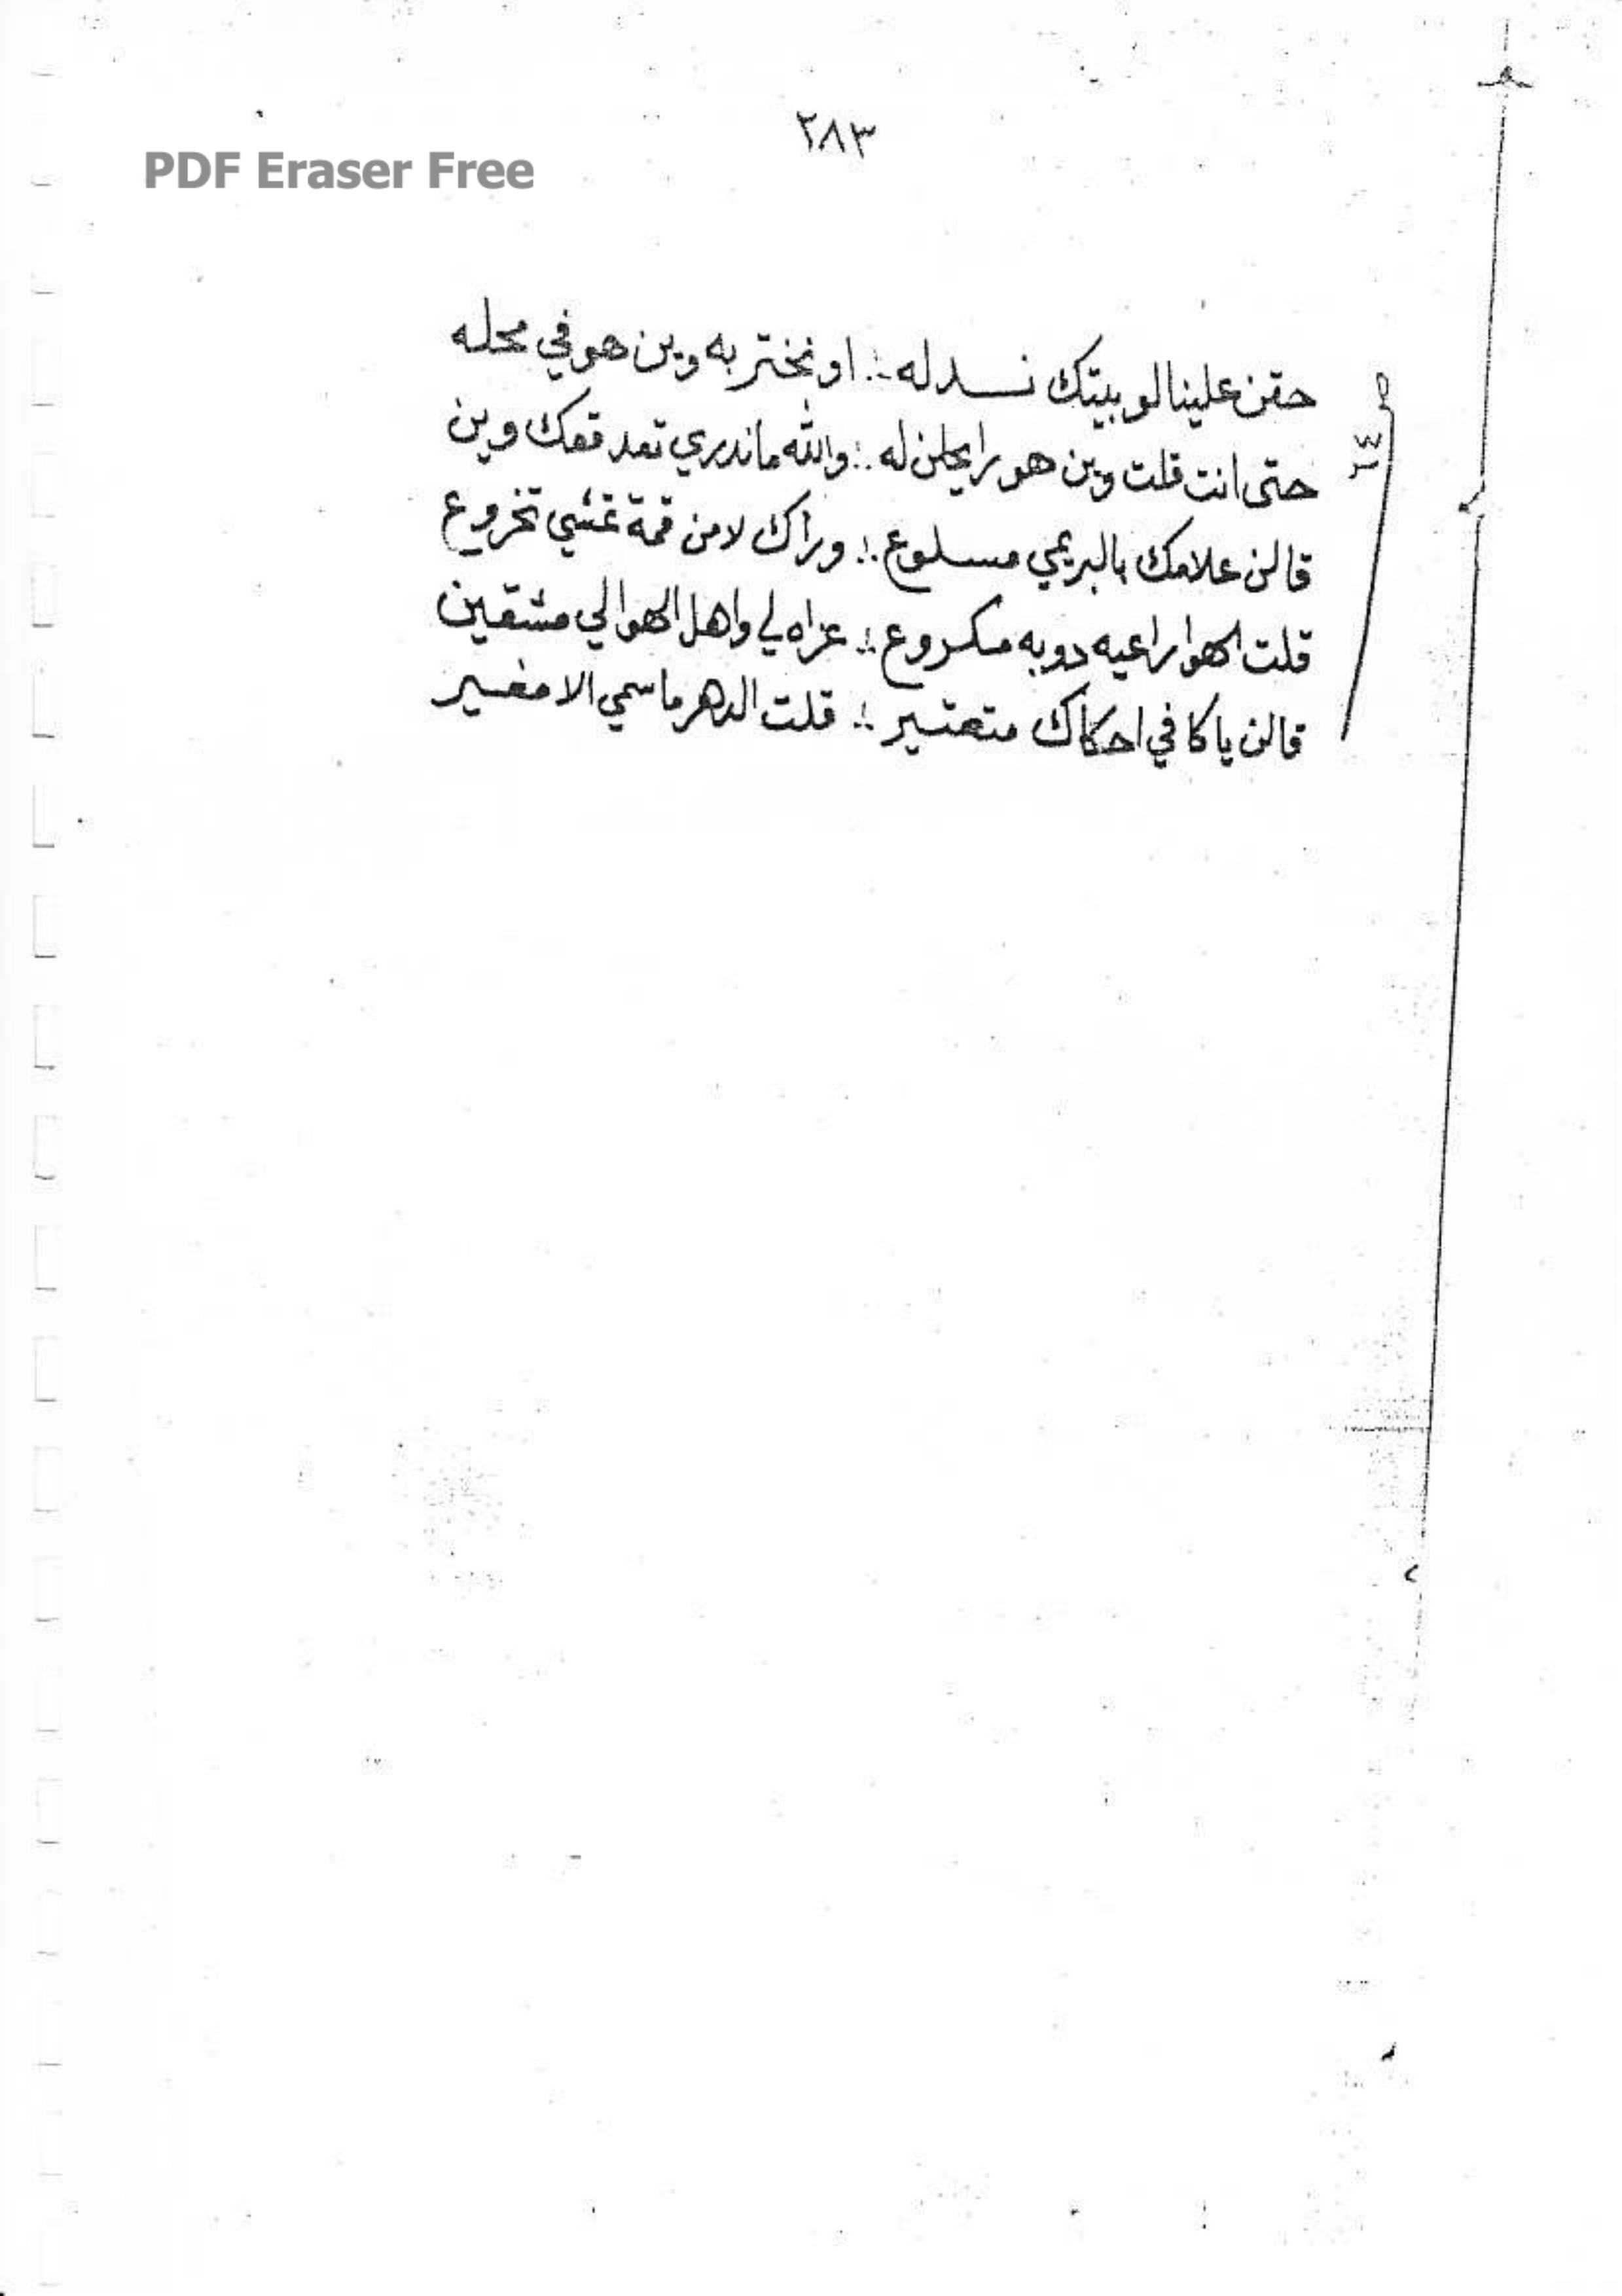 ٢٨٣
PDF Eraser Free
حقن علينا لو بيتك نسدله ∴ او نختر به وين هو في محله
حتى انت قلت وين هو رايحلن له ∴ والله ماندري تعد قعك وين
قالن علامك بالبريمي مسلوع ∴ وراك لامن قمة تمشي تخروع
قلت الهوا راعيه دوبه مكروع ∴ عزاه لي واهل الهوا لي مشقين
قالن ياكا في احكاك متعتير ∴ قلت الدهر ماسمي الا مغير